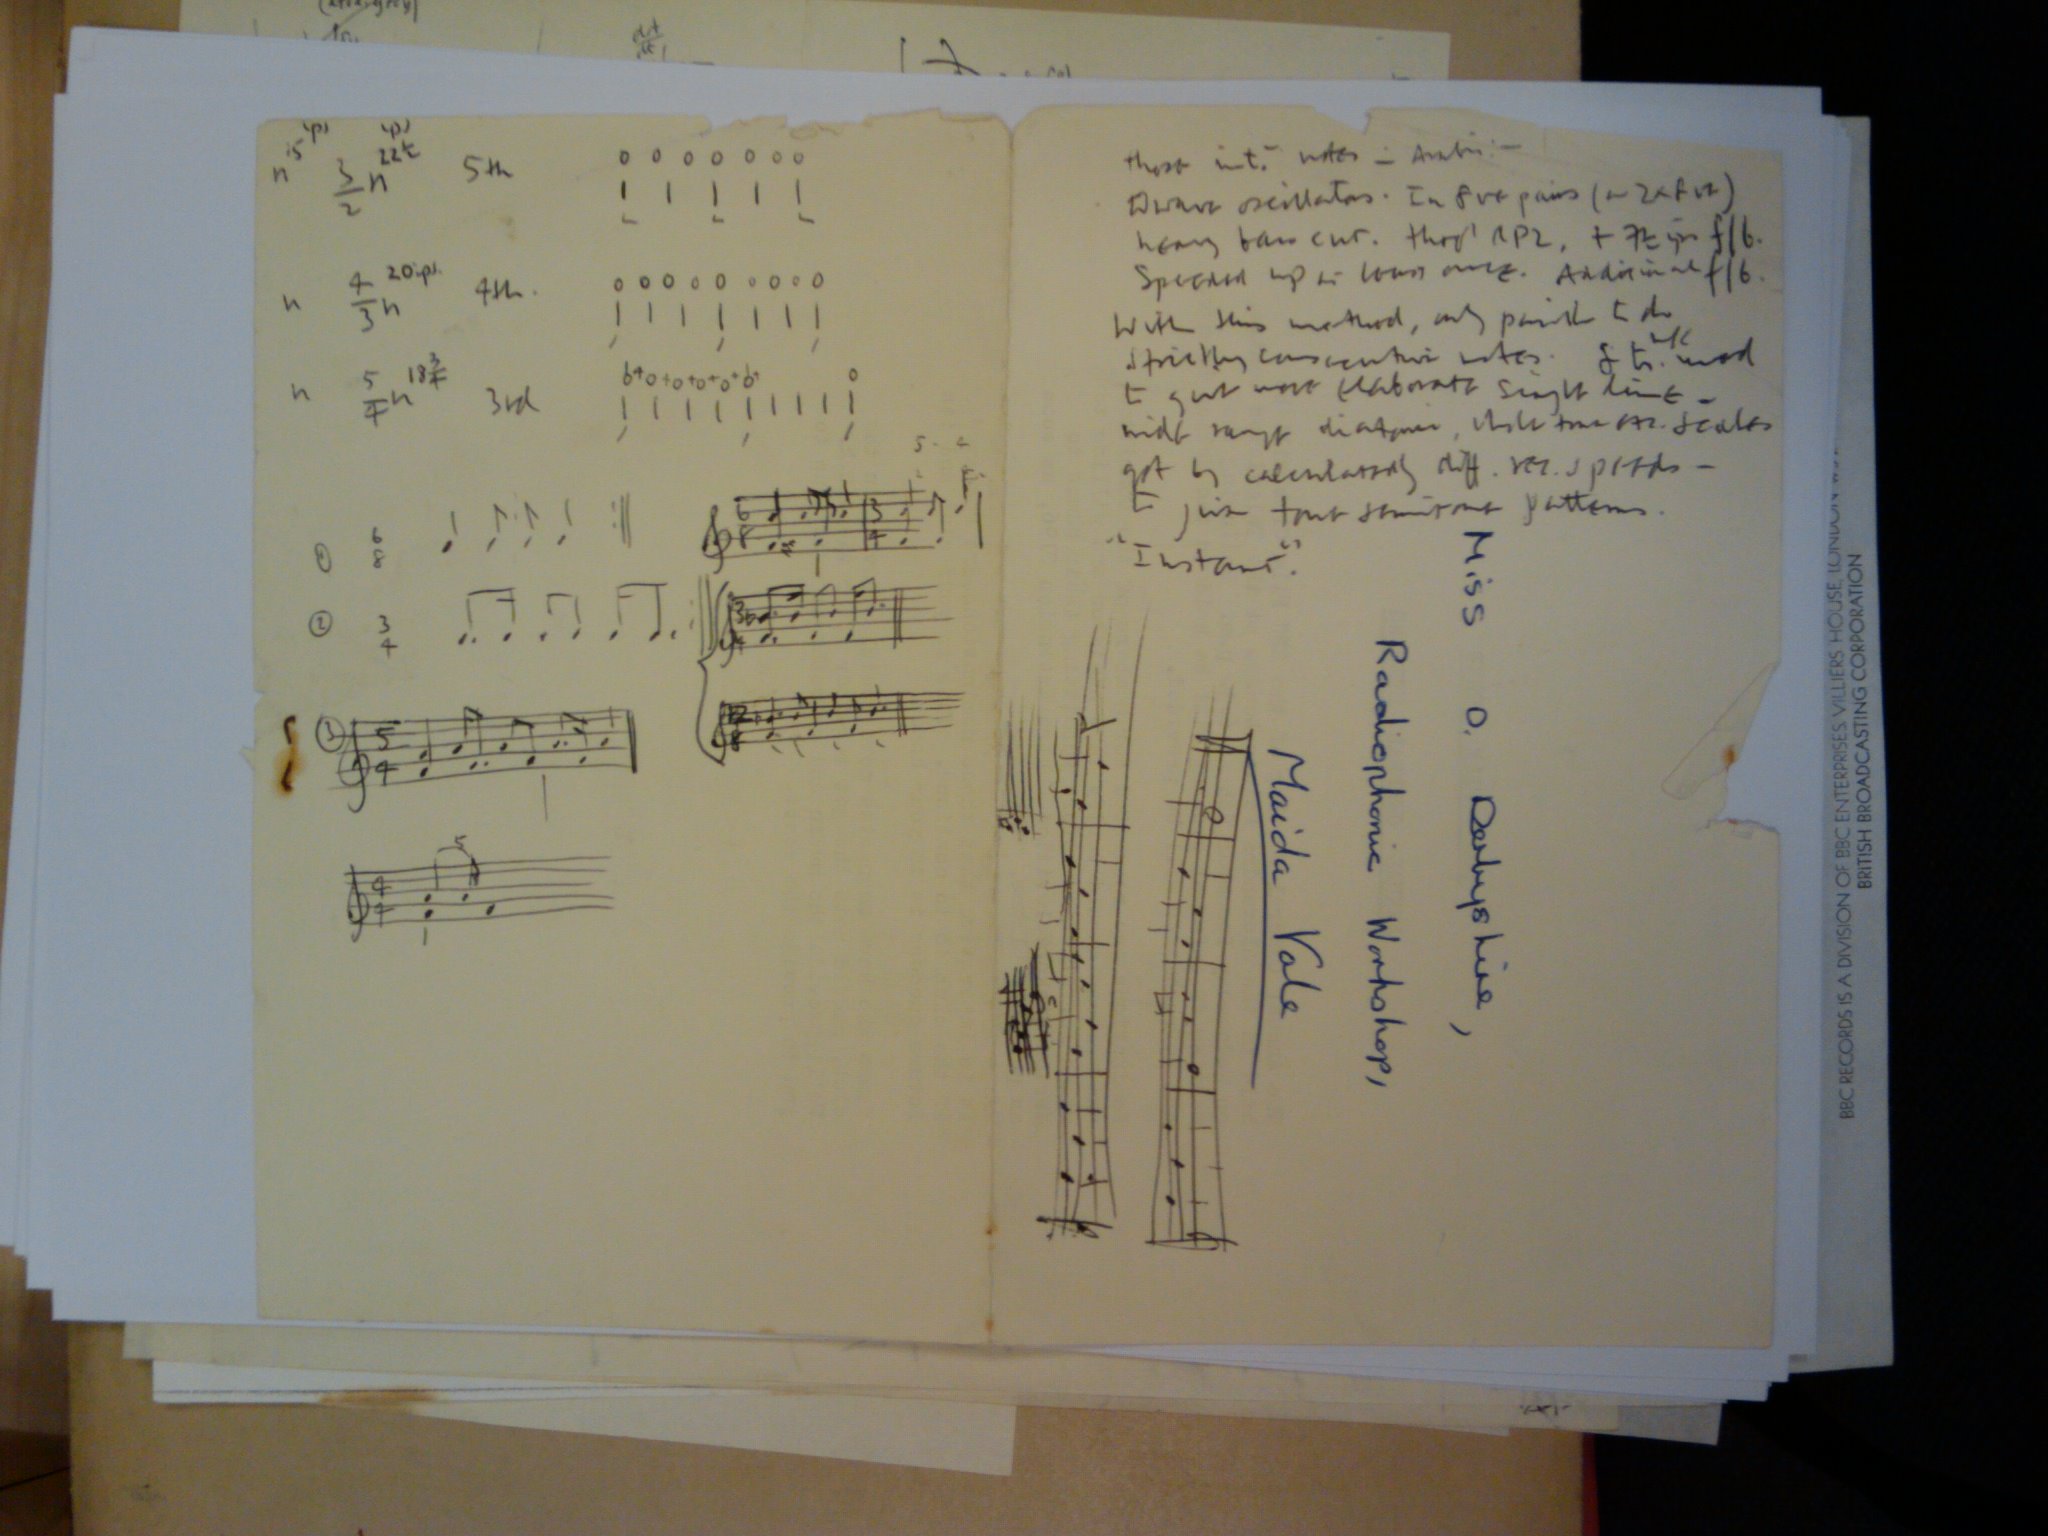 15 ips ips
n 3/2 n 22½ 5th
n 4/3 n 20 ips. 4th.
n 5/4 n 18¾ 3rd
① 6/8
② 3/4
③ 5/4
4/4 5
6/8 3/4
3/4
notes –
oscillators. In 8ve pairs (
heavy bass cut. + 7½ ips f/b.
Speeded up at least once. Additional f/b.
With this method, only possible to do
strictly consecutive notes. mod
to get more elaborate single line –
wide range diatonic, whole tone etc. scales
got by diff. rec. speeds –
to give tone semitone patterns.
"Instant".
Miss D. Derbyshire,
Radiophonic Workshop,
Maida Vale
BBC RECORDS IS A DIVISION OF BBC ENTERPRISES VILLIERS HOUSE, LONDON
BRITISH BROADCASTING CORPORATION